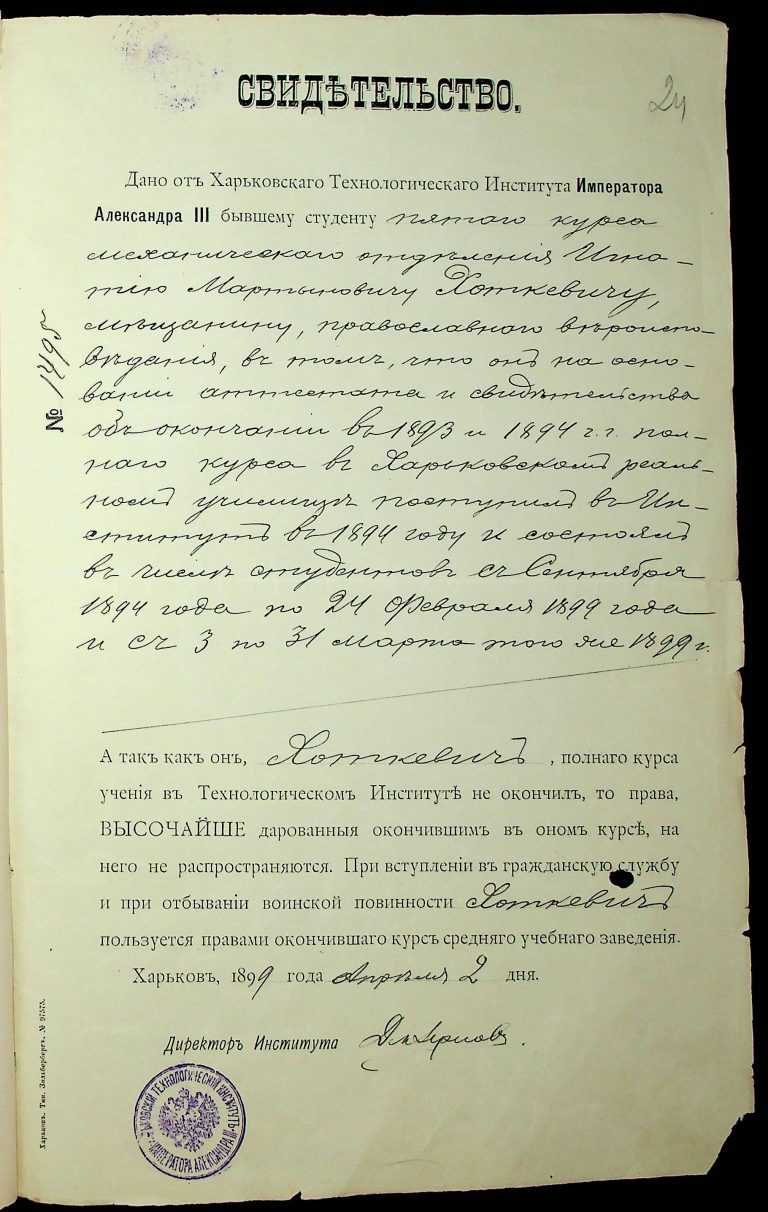 СВИДѢТЕЛЬСТВО.
24
Дано отъ Харьковскаго Технологическаго Института Императора
Александра III бывшему студенту пятаго курса
механическаго отдѣленія Игна-
тію Мартыновичу Хоткевичу,
мѣщанину, православнаго вѣроиспо-
вѣданія, въ томъ, что онъ на осно-
ваніи аттестата и свидѣтельства
объ окончаніи въ 1893 и 1894 г.г. пол-
наго курса въ Харьковскомъ реаль-
номъ училищѣ поступилъ въ Ин-
ститутъ въ 1894 году и состоялъ
въ числѣ студентовъ съ Сентября
1894 года по 24 Февраля 1899 года
и съ 3 по 31 Марта того же 1899 г.
№ 1495
А такъ какъ онъ, Хоткевичъ, полнаго курса
ученія въ Технологическомъ Институтѣ не окончилъ, то права,
ВЫСОЧАЙШЕ дарованныя окончившимъ въ ономъ курсѣ, на
него не распространяются. При вступленіи въ гражданскую службу
и при отбываніи воинской повинности Хоткевичъ
пользуется правами окончившаго курсъ средняго учебнаго заведенія.
Харьковъ, 1899 года Апрѣля 2 дня.
Директоръ Института
Харьковъ. Тип. Зильберберга. № 97573.
ХАРЬКОВСКІЙ ТЕХНОЛОГИЧЕСКІЙ ИНСТИТУТЪ
ИМПЕРАТОРА АЛЕКСАНДРА III